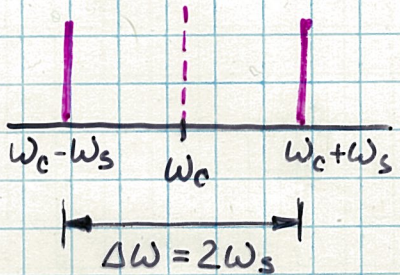 ω꜀-ωₛ ω꜀ ω꜀+ωₛ
Δω = 2ωₛ